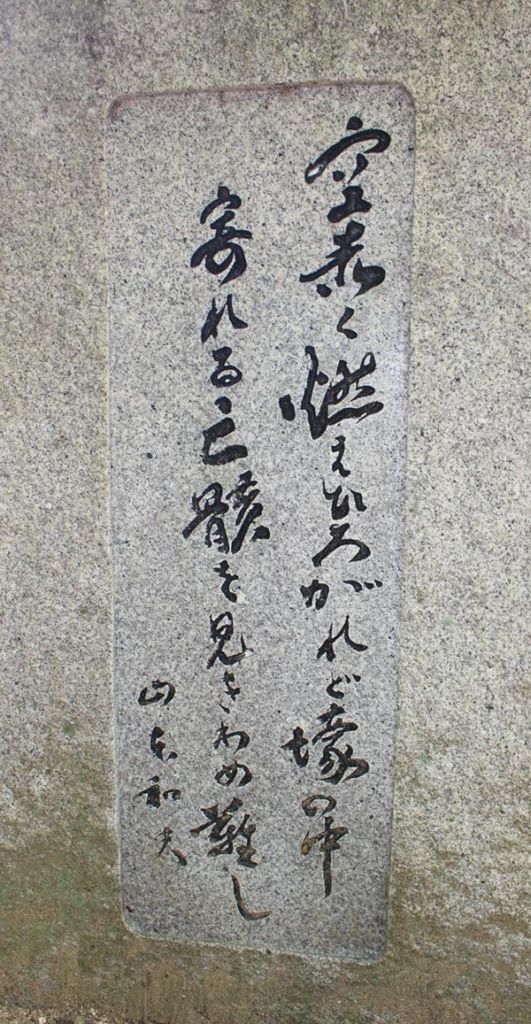 空赤く燃えひろがれど壕の中
寄れる亡骸を見きわめ難し
山本和夫